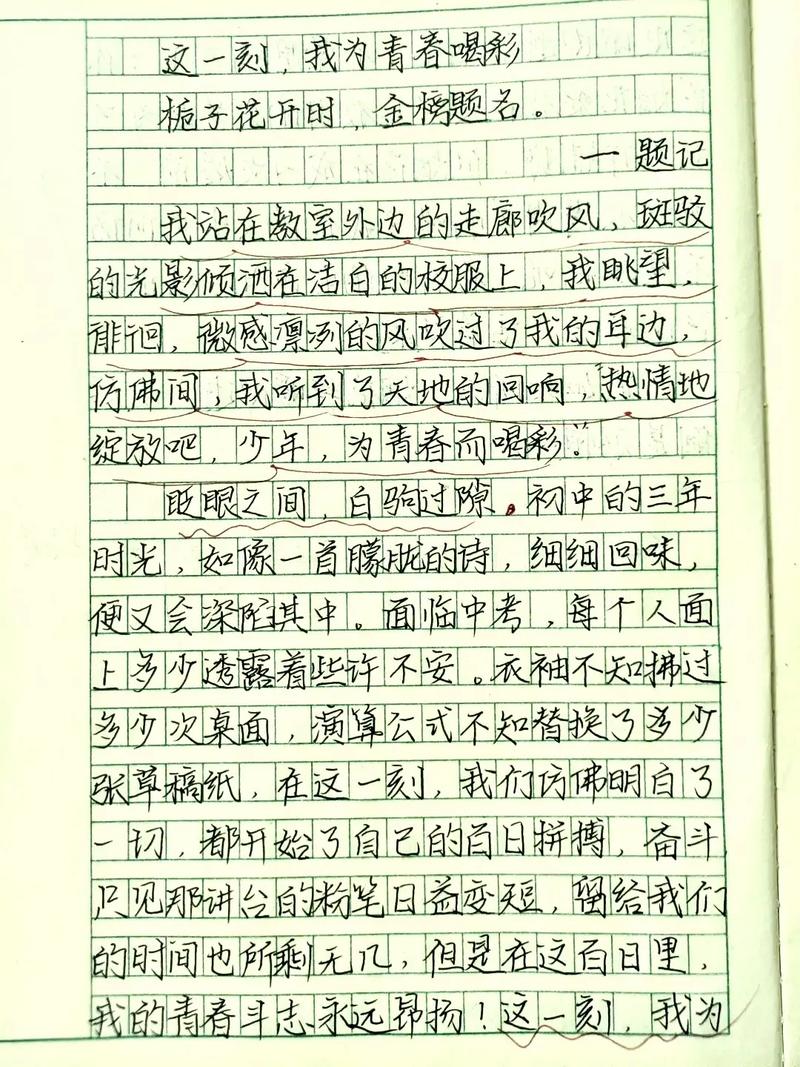 这一刻，我为青春喝彩
栀子花开时，金榜题名。
一题记
我站在教室外边的走廊吹风，斑驳
的光影倾洒在洁白的校服上，我眺望，
徘徊，微感凛冽的风吹过了我的耳边，
仿佛间，我听到了天地的回响，“热情地
绽放吧，少年，为青春而喝彩。”
眨眼之间，白驹过隙。初中的三年
时光，如像一首朦胧的诗，细细回味，
便又会深陷其中。面临中考，每个人面
上多少透露着些许不安。衣袖不知拂过
多少次桌面，演算公式不知替换了多少
张草稿纸，在这一刻，我们仿佛明白了
一切，都开始了自己的百日拼搏，奋斗
只见那讲台的粉笔日益变短，留给我们
的时间也所剩无几，但是在这百日里，
我的青春斗志永远昂扬！这一刻，我为